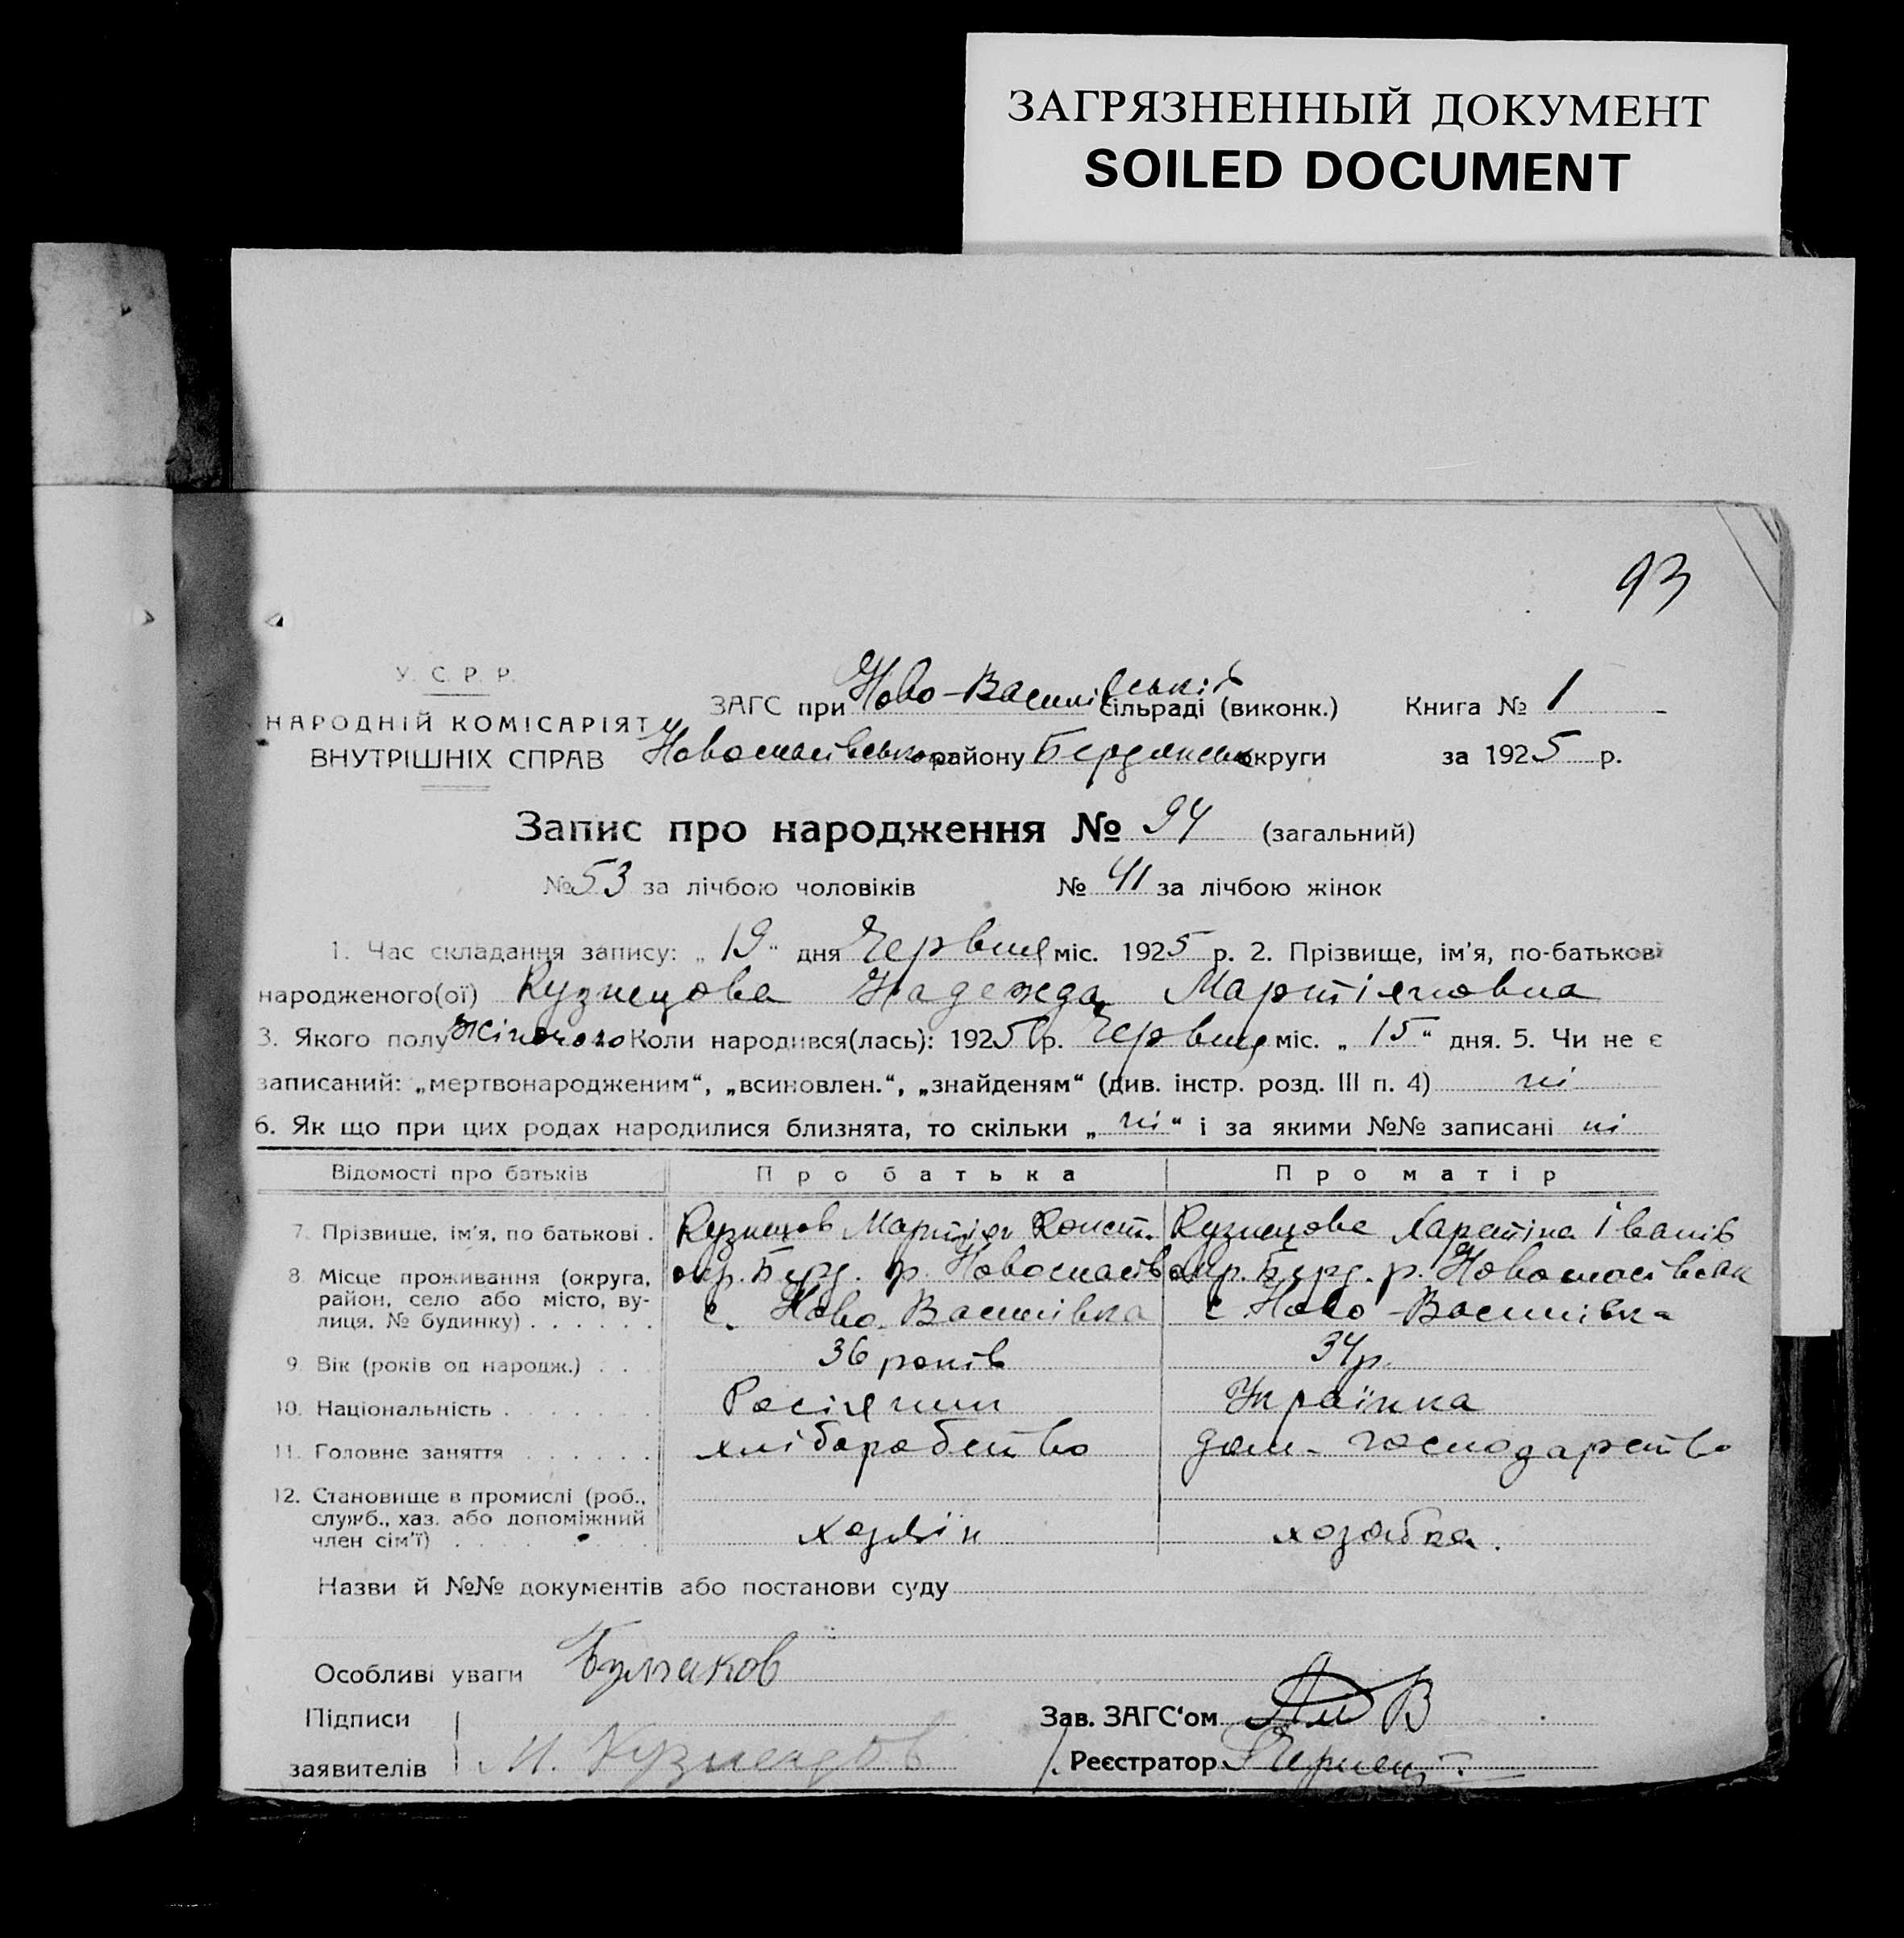 ЗАГРЯЗНЕННЫЙ ДОКУМЕНТ
SOILED DOCUMENT
93
У. С. Р. Р.
НАРОДНІЙ КОМІСАРІЯТ
ВНУТРІШНІХ СПРАВ
ЗАГС при Ново-Василівській сільраді (виконк.) Книга № 1
Новоспасівського району Бердянської округи за 1925 р.
Запис про народження № 94 (загальний)
№ 53 за лічбою чоловіків № 41 за лічбою жінок
1. Час складання запису: „19“ дня Червня міс. 1925 р. 2. Прізвище, ім’я, по-батькові
народженого(ої) Кузнецова Надежда Мартіяновна
3. Якого полу жіночого Коли народився(лась): 1925 р. Червня міс. „15“ дня. 5. Чи не є
записаний: „мертвонародженим“, „всиновлен.“, „знайденям“ (див. інстр. розд. III п. 4) ні
6. Як що при цих родах народилися близнята, то скільки „ні“ і за якими №№ записані ні
Відомості про батьків Про батька Про матір
7. Прізвище, ім’я, по батькові . Кузнецов Мартіян Конст. Кузнецова Харетіна Іванів
8. Місце проживання (округа, окр. Берд. р. Новоспасів окр. Берд. р. Новоспасівськ
район, село або місто, ву- с. Ново-Василівка с Ново-Василівка
лиця, № будинку) . . . . . .
9. Вік (років од народж.) . . 36 років 34 р.
10. Національність . . . . . . Росіянин Українка
11. Головне заняття . . . . . . хліборобство дом-господарство
12. Становище в промислі (роб.,
служб., хаз. або допоміжний хазяїн хозяйка.
член сім’ї) . . . . . . .
Назви й №№ документів або постанови суду
Особливі уваги Булгаков
Підписи
заявителів М. Кузнецов
Зав. ЗАГС‘ом
Реєстратор